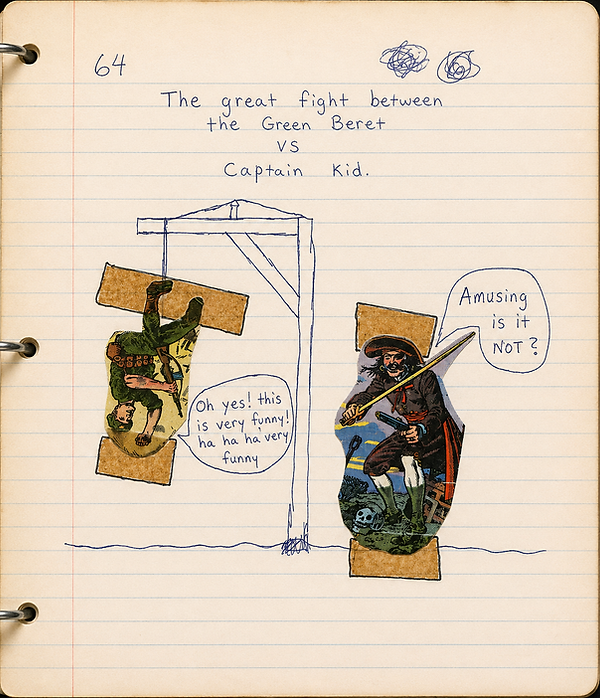 64
The great fight between
the Green Beret
VS
Captain Kid.
Amusing
is it
NOT?
Oh yes! this
is very funny!
ha ha ha very
funny